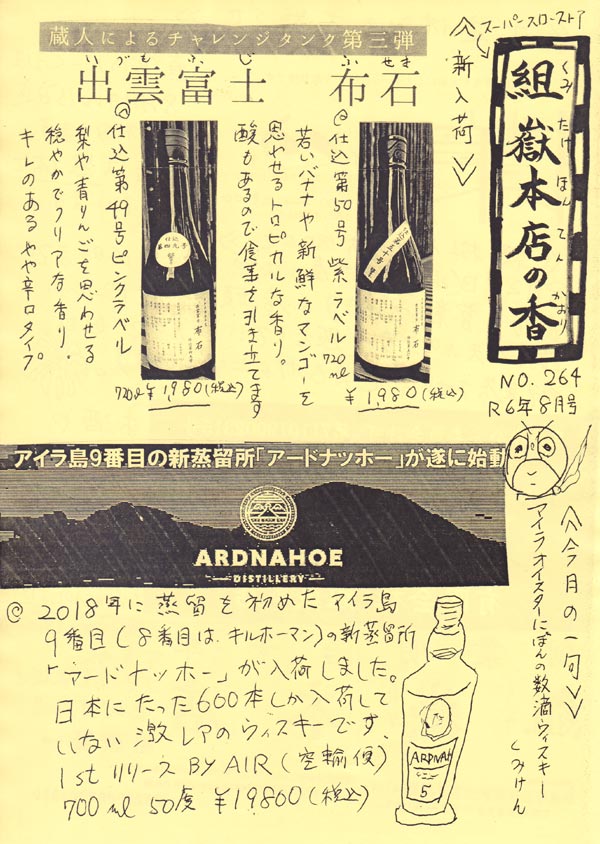 スーパースローストア
組嶽本店の香
くみたけほんてんかおり
NO. 264
R6年8月号
≪新入荷≫
蔵人によるチャレンジタンク第三弾
いづもふじ ふせき
出雲富士 布石
◎仕込第50号 紫ラベル 720ml
若いバナナや新鮮なマンゴーを
思わせるトロピカルな香り。
酸もあるので食事を引き立てます
¥1,980(税込)
◎仕込第49号ピンクラベル
梨や青りんごを思わせる
穏やかでクリアな香り.
キレのあるやや辛口タイプ
720ml ¥1,980(税込)
アイラ島9番目の新蒸留所「アードナッホー」が遂に始動
ARDNAHOE
DISTILLERY
≪今月の一句≫
アイラオイスターにぽんの数滴ウィスキー
くみけん
◎2018年に蒸留を初めたアイラ島
9番目(8番目は、キルホーマン)の新蒸留所
「アードナッホー」が入荷しました。
日本にたった600本しか入荷して
いない激レアのウィスキーです、
1stリリース BY AIR(空輸便)
700ml 50度 ¥19800(税込)
ARDNAH
5